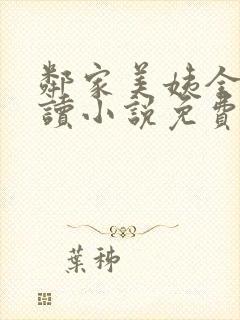 鄰家美姨全
讀小說免費
葉秭